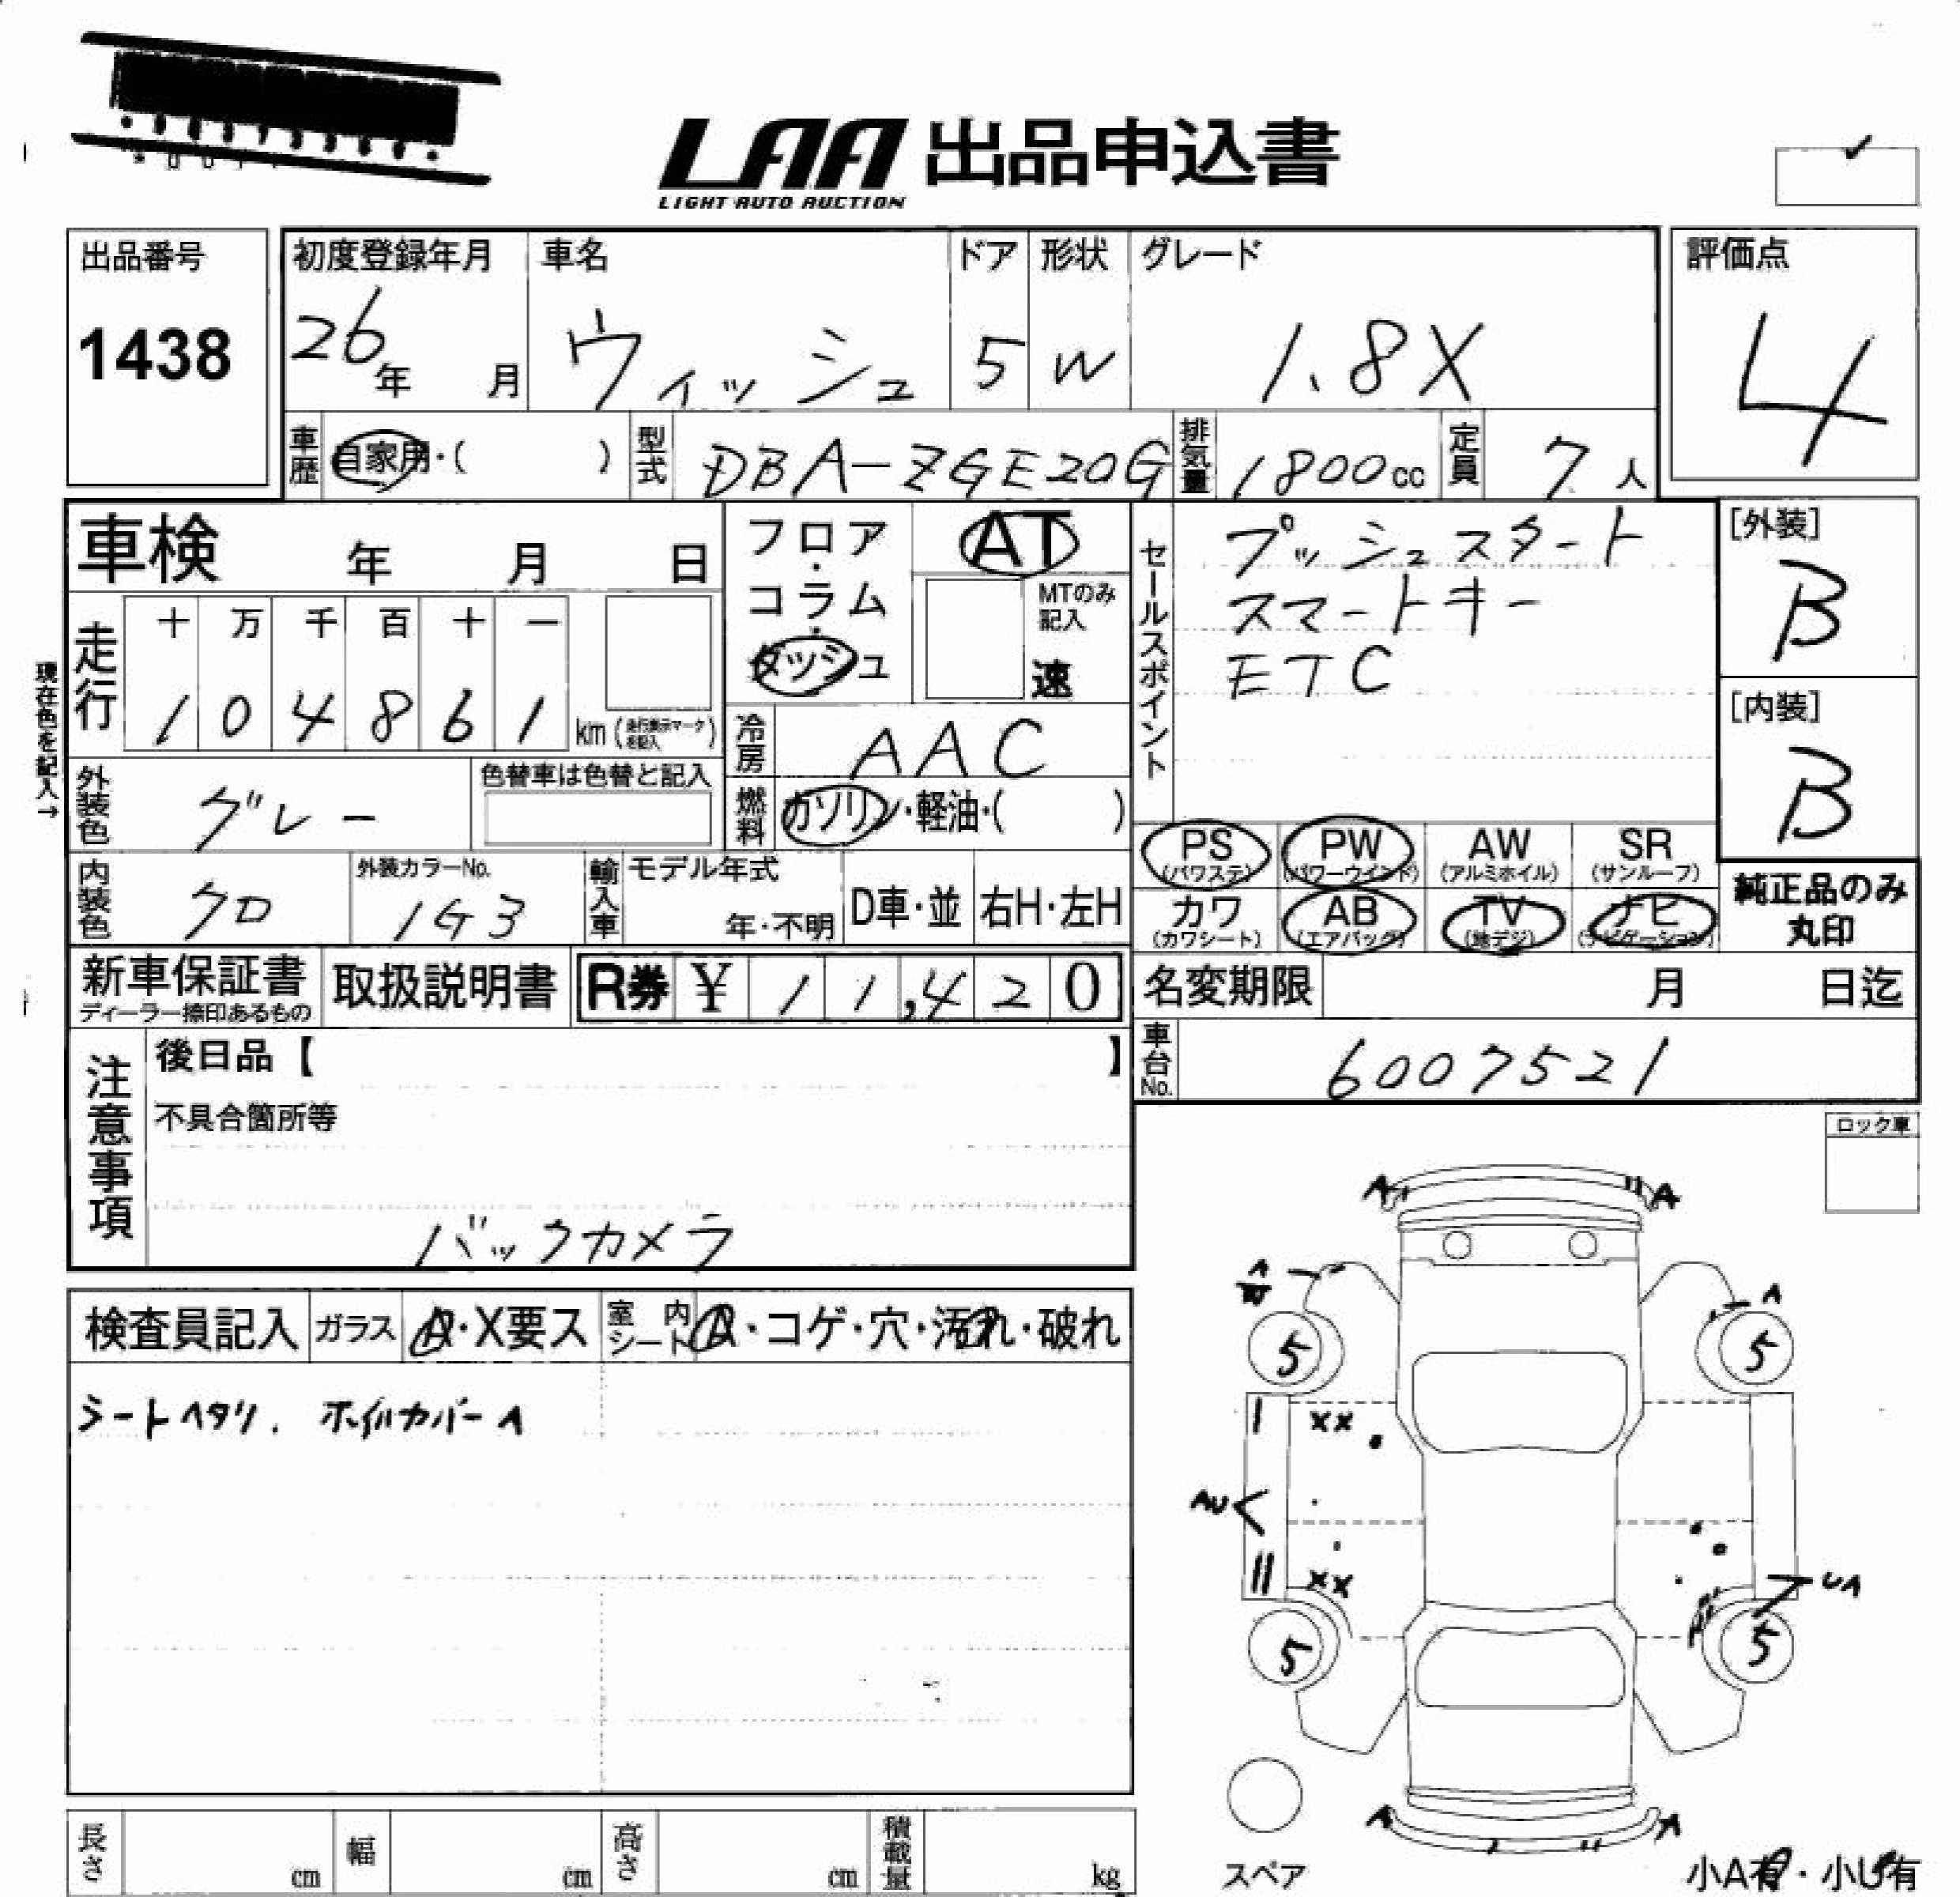 LAA 出品申込書
LIGHT AUTO AUCTION
出品番号
1438
初度登録年月
26年 月
車名
ウィッシュ
ドア
5
形状
W
グレード
1.8X
評価点
4
車歴
自家用・( )
型式
DBA-ZGE20G
排気量
1800cc
定員
7人
車検 年 月 日
フロア・コラム・ダッシュ
AT
MTのみ記入
速
セールスポイント
プッシュスタート
スマートキー
ETC
[外装]
B
[内装]
B
現在色を記入→
走行
十 万 千 百 十 一
1 0 4 8 6 1
km (走行表示マークを記入)
冷房
AAC
外装色
グレー
色替車は色替と記入
燃料
ガソリン・軽油・( )
PS (パワステ)
PW (パワーウインド)
AW (アルミホイル)
SR (サンルーフ)
カワ (カワシート)
AB (エアバック)
TV (地デジ)
ナビ (ナビゲーション)
純正品のみ
丸印
内装色
クロ
外装カラーNo.
1G3
輸入車
モデル年式
年・不明
D車・並
右H・左H
新車保証書
ディーラー捺印あるもの
取扱説明書
R券 ¥ 11,420
名変期限 月 日迄
車台No.
6007521
注意事項
後日品【 】
不具合箇所等
バックカメラ
ロック車
検査員記入
ガラス
A・X要ス
室内シート
A・コゲ・穴・汚れ・破れ
シートヘタリ. ホイルカバーA
A A
A A
5 5
XX
AU
XX
UA
5 5
A A
スペア
小A有・小U有
長さ cm
幅 cm
高さ cm
積載量 kg